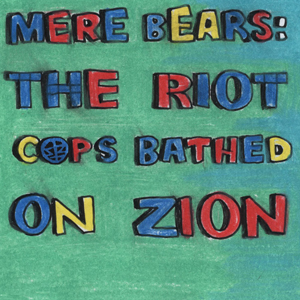 MERE BEARS:
THE RIOT
COPS BATHED
ON ZION